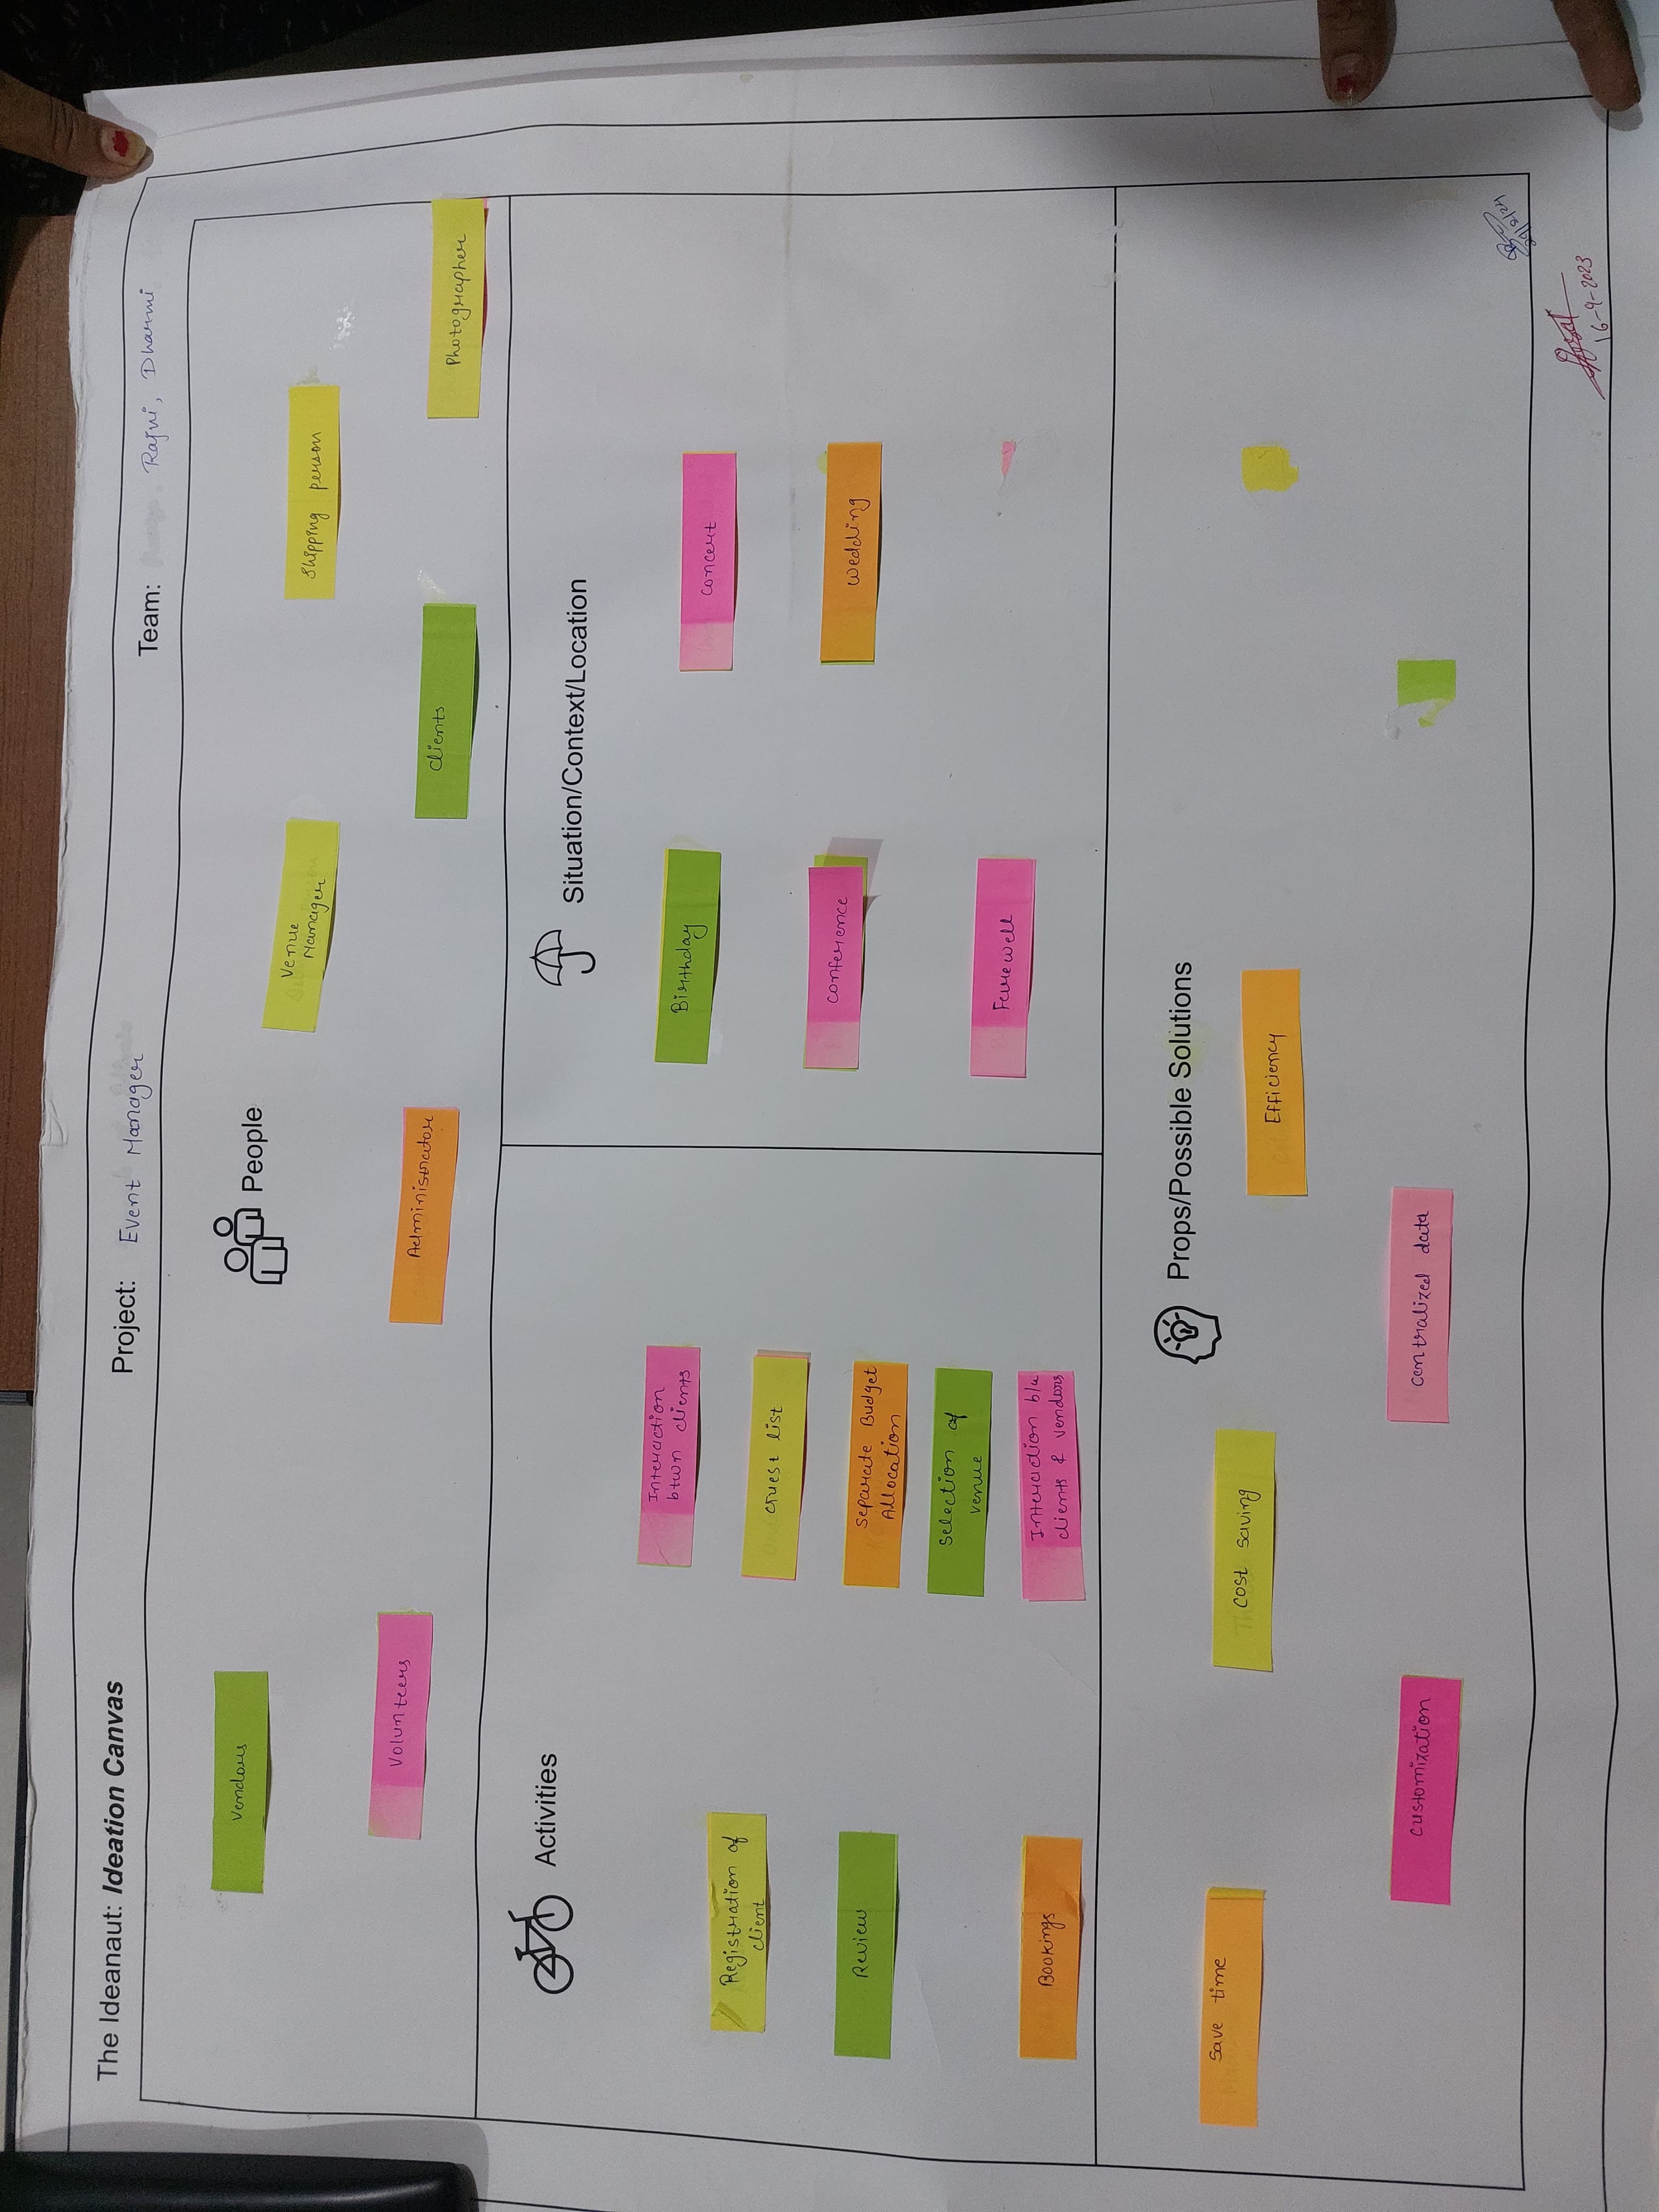 The Ideanaut: Ideation Canvas
Project: Event Manager
Team: Rajni, Dharmi
People
Vendors
Volunteers
Administrator
Venue
Manager
Clients
Shipping person
Photographer
Activities
Registration of
client
Review
Bookings
Interaction
btwn clients
Guest list
Separate Budget
Allocation
Selection of
venue
Interaction b/w
clients & vendors
Situation/Context/Location
Birthday
Conference
Farewell
Concert
Wedding
Props/Possible Solutions
Save time
Cost saving
Efficiency
Customization
Centralized data
16-9-2023